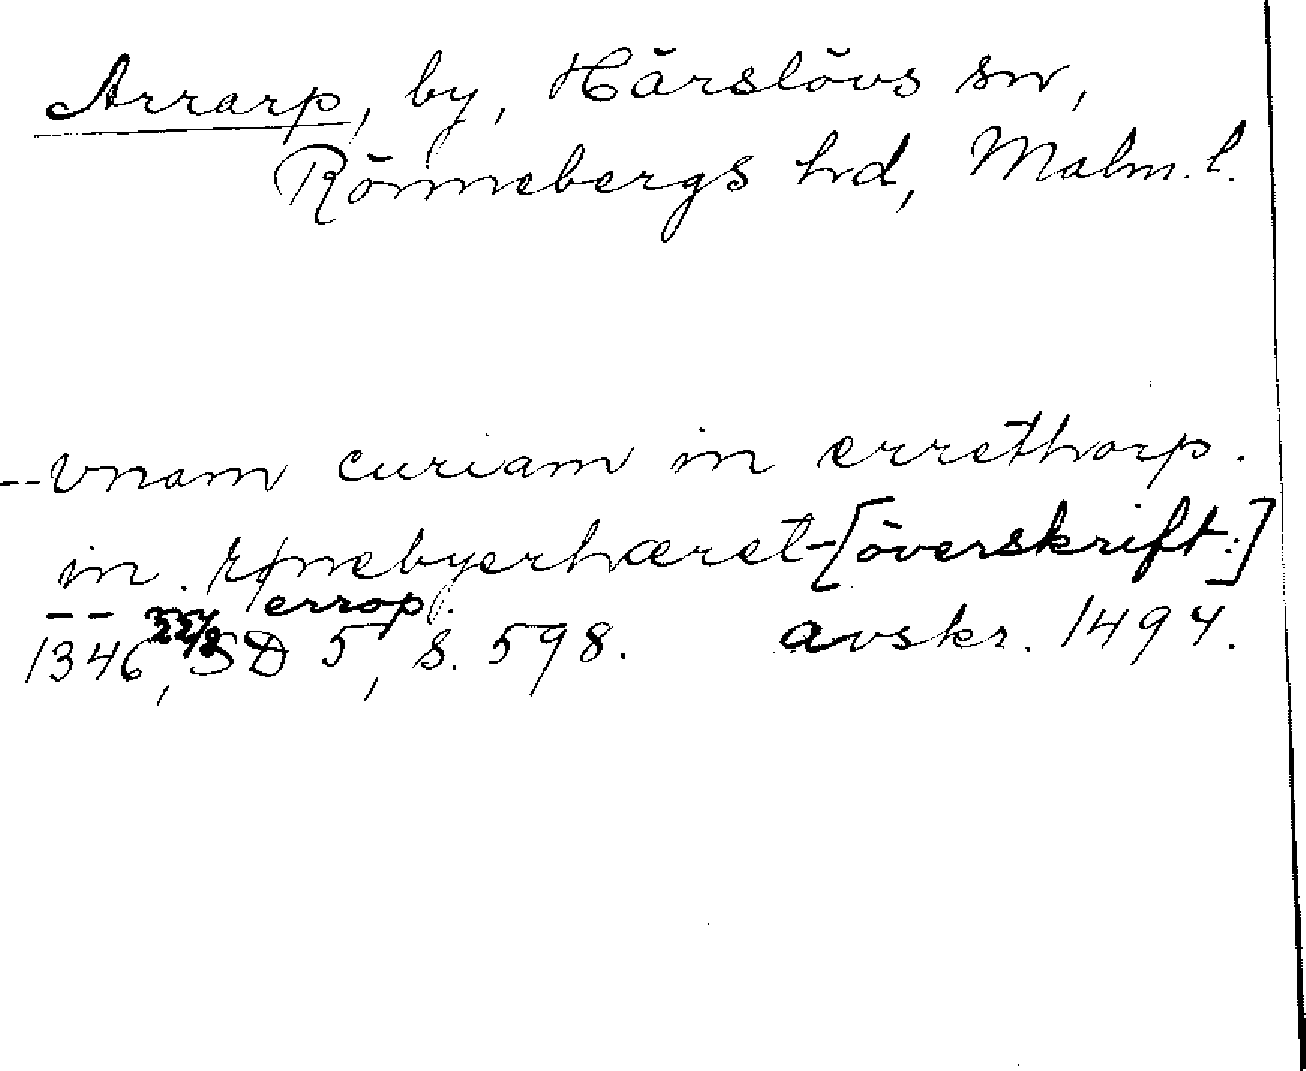 Arrarp, by, Härslövs sn,
Rönnebergs hd, Malm. l.
--vnam curiam in errethorp.
in. rønebyerhæret-[överskrift:]
-- errop.
1346 22/8, SD 5, s. 598. avskr. 1494.